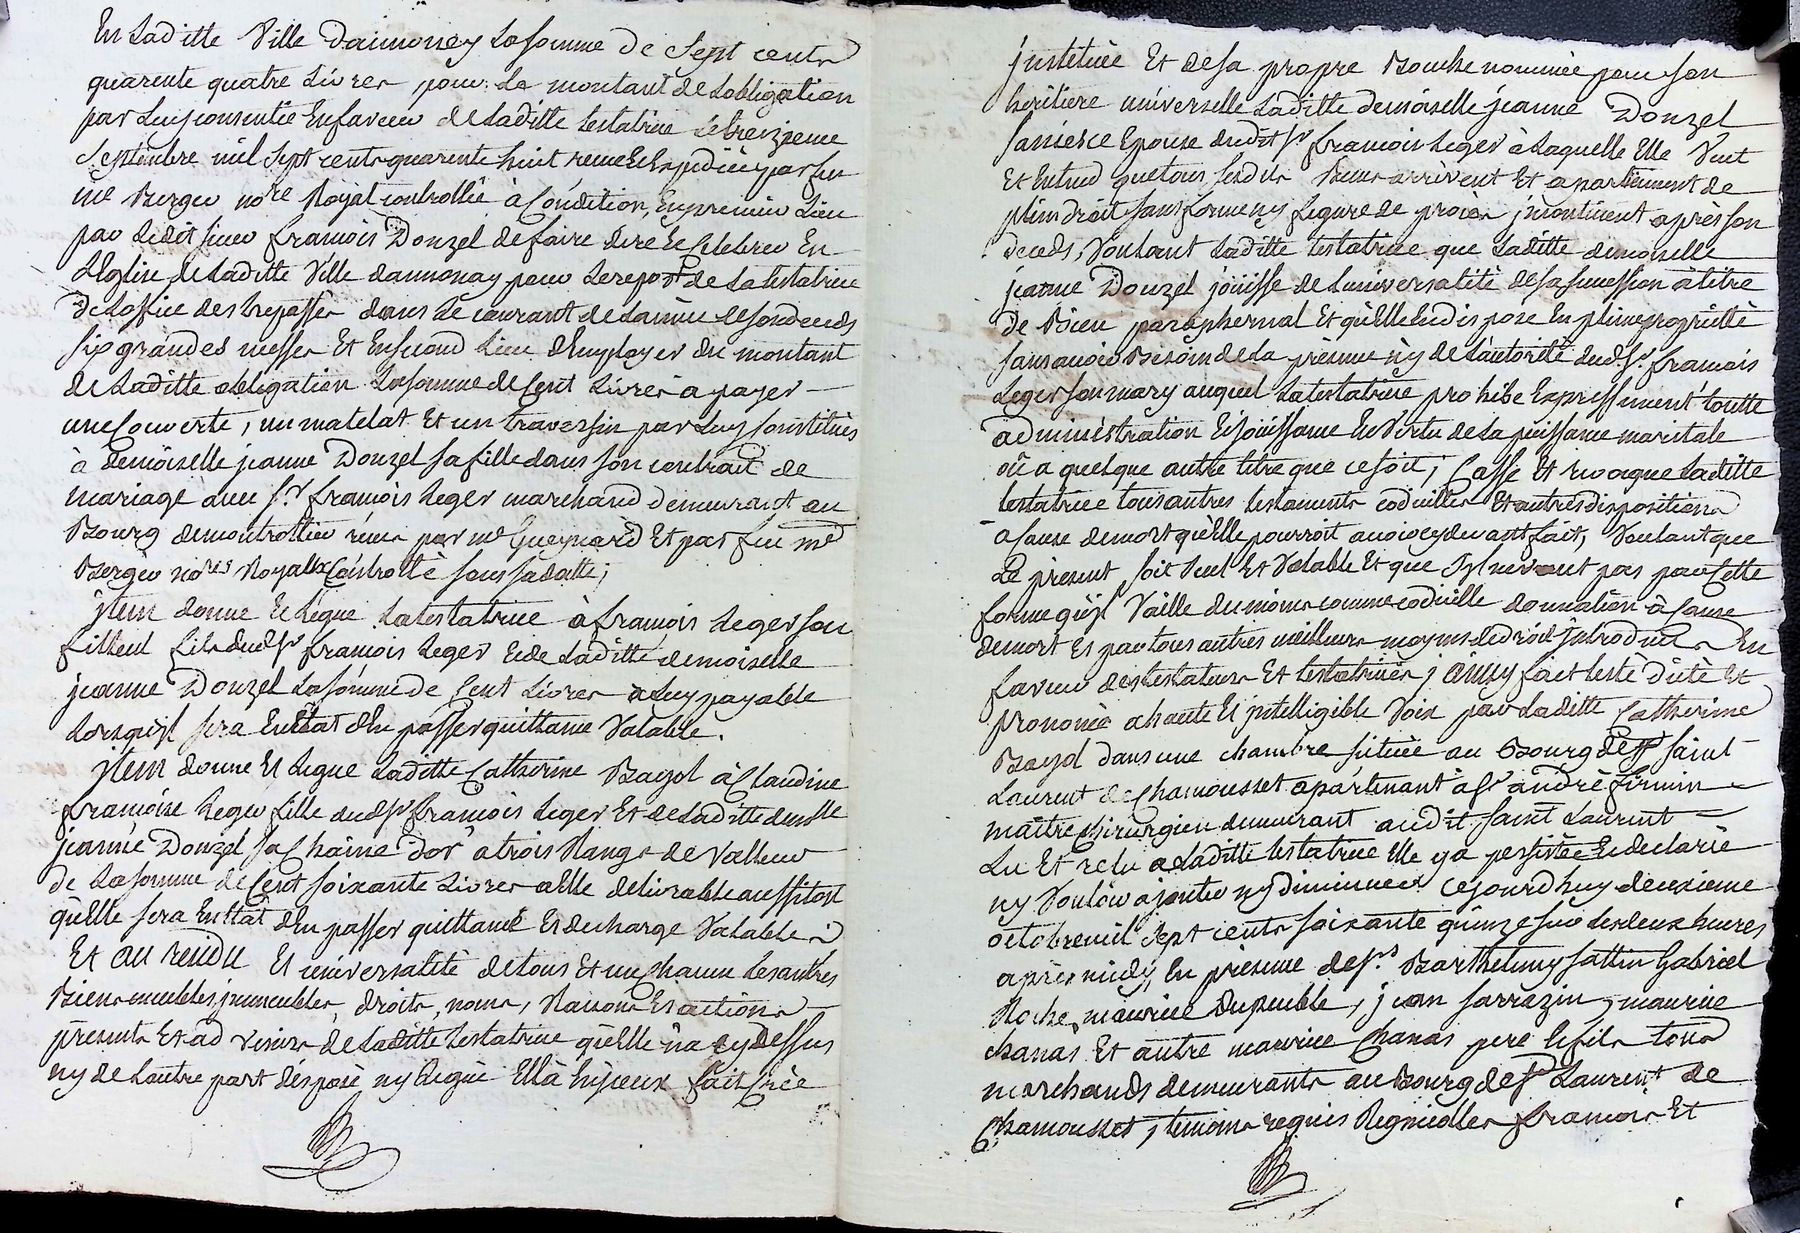 En Laditte Ville Daimoney La somme de Sept cents
quarente quatre Livres pour Le montant de Lobligation
par Luy consentie En faveur de Laditte testatrice Le treizieme
Septembre mil Sept cents quarente huit receue et Expediée par feu
me Berger nore Royal controllée à Condition, En premier Lieu
par Ledit sieur francois Donzel de faire dire et Celebrer En
LEglise de Laditte Ville dannonay pour Le repost de La testatrice
De Lofice des trepassés dans Le courant de Lannée de son deceds
six grandes messes Et En second Lieu dEmployer du montant
de Laditte obligation La somme de Cent Livres a payer
une Couverte, un matelat Et un traversin par Luy Constitués
à demoiselle jeanne Donzel sa fille dans son contrait de
mariage avec sr francois Leger marchand demeurant au
Bourg de montrottier receu par me Gueynard Et par feu me
Berger nores Royaux Controllé sous sa datte;
jtem donne et Legue La testatrice à francois Leger son
filleul fils dudsr francois Leger et de Laditte demoiselle
jeanne Donzel La somme de Cent Livres a Luy payable
Lorsqu'jl sera En Etat dEn passer quittance Valable.
jtem donne Et Legue Laditte Catherine Bayol à Claudine
francoise Leger fille dudsr francois Leger Et de Laditte demlle
jeanne Donzel sa Chaine d'or a trois Rangs de Valleur
de La somme de Cent soixante Livres a Elle delivrable aussitost
qu'elle sera En Etat dEn passer quittance Et decharge Valables
Et au residu Et universalité de tous Et un Chacun Les autres
Biens meubles, jmmeubles, droits, noms, Raisons Et actions
présents Et ad venirs de Laditte testatrice qu'elle n'a cy dessus
ny de Lautre part disposé ny Legué Ella hijceux fait Crée
jnstituée Et de sa propre Bouche nommée pour son
heritiere universelle Laditte demoiselle jeanne Donzel
sa niesce Epouse dudit sr francois Leger à Laquelle Elle Veut
Et Entend que tous sesdits Biens arrivent Et apartiennent de
plein droit sans forme ny figure de procès jncontinent après son
deceds, Voulant Laditte testatrice que Laditte demoiselle
jeanne Donzel jouisse de Luniversalité de sa succession à titre
de Bien paraphernal Et qu'Elle En dispose En pleine proprietté
sans avoir Besoin de La présence ny de Lautorité dud. sr. francois
Leger son mary auquel La testatrice prohibe Expressement toutte
administration Et jouissance En Vertu de La puissance maritale
ou a quelque autre titre que ce soit; Casse Et revoque Laditte
testatrice tous autres testaments codicilles Et autres dispositions
a Cause de mort qu'Elle pourroit avoir cy devant fait, Voulant que
Le present soit seul Et Valable Et que syl ne vaut pas par Cette
forme qu'jl Vaille du moins comme codicille donnation à Cause
de mort Et par tous autres meilleurs moyens de droit jntroduits En
faveur des testateurs Et testatrices, ainsy fait testé dicté et
prononcé a haute Et jntelligible Voix par Laditte Catherine
Bayol dans une chambre située au Bourg de saint
Laurent de Chamousset apartenant a sr andré firmin
maitre chirurgien demeurant audit saint Laurent
Lu Et relu a Laditte testatrice Elle y a persistée Et declarée
ny Vouloir ajouter ny diminuer cejourdhuy deuxieme
octobre mil sept cents soixante quinze sur Les deux heures
après midy, En présence de srs Barthelemy sattin Gabriel
Roche, maurice Dupeuble, jean sarrazin, maurice
chanas Et autre maurice Chanas pere et fils tous
marchands demeurants au Bourg de st Laurent de
Chamousset, temoins requis Regnicolles francois Et